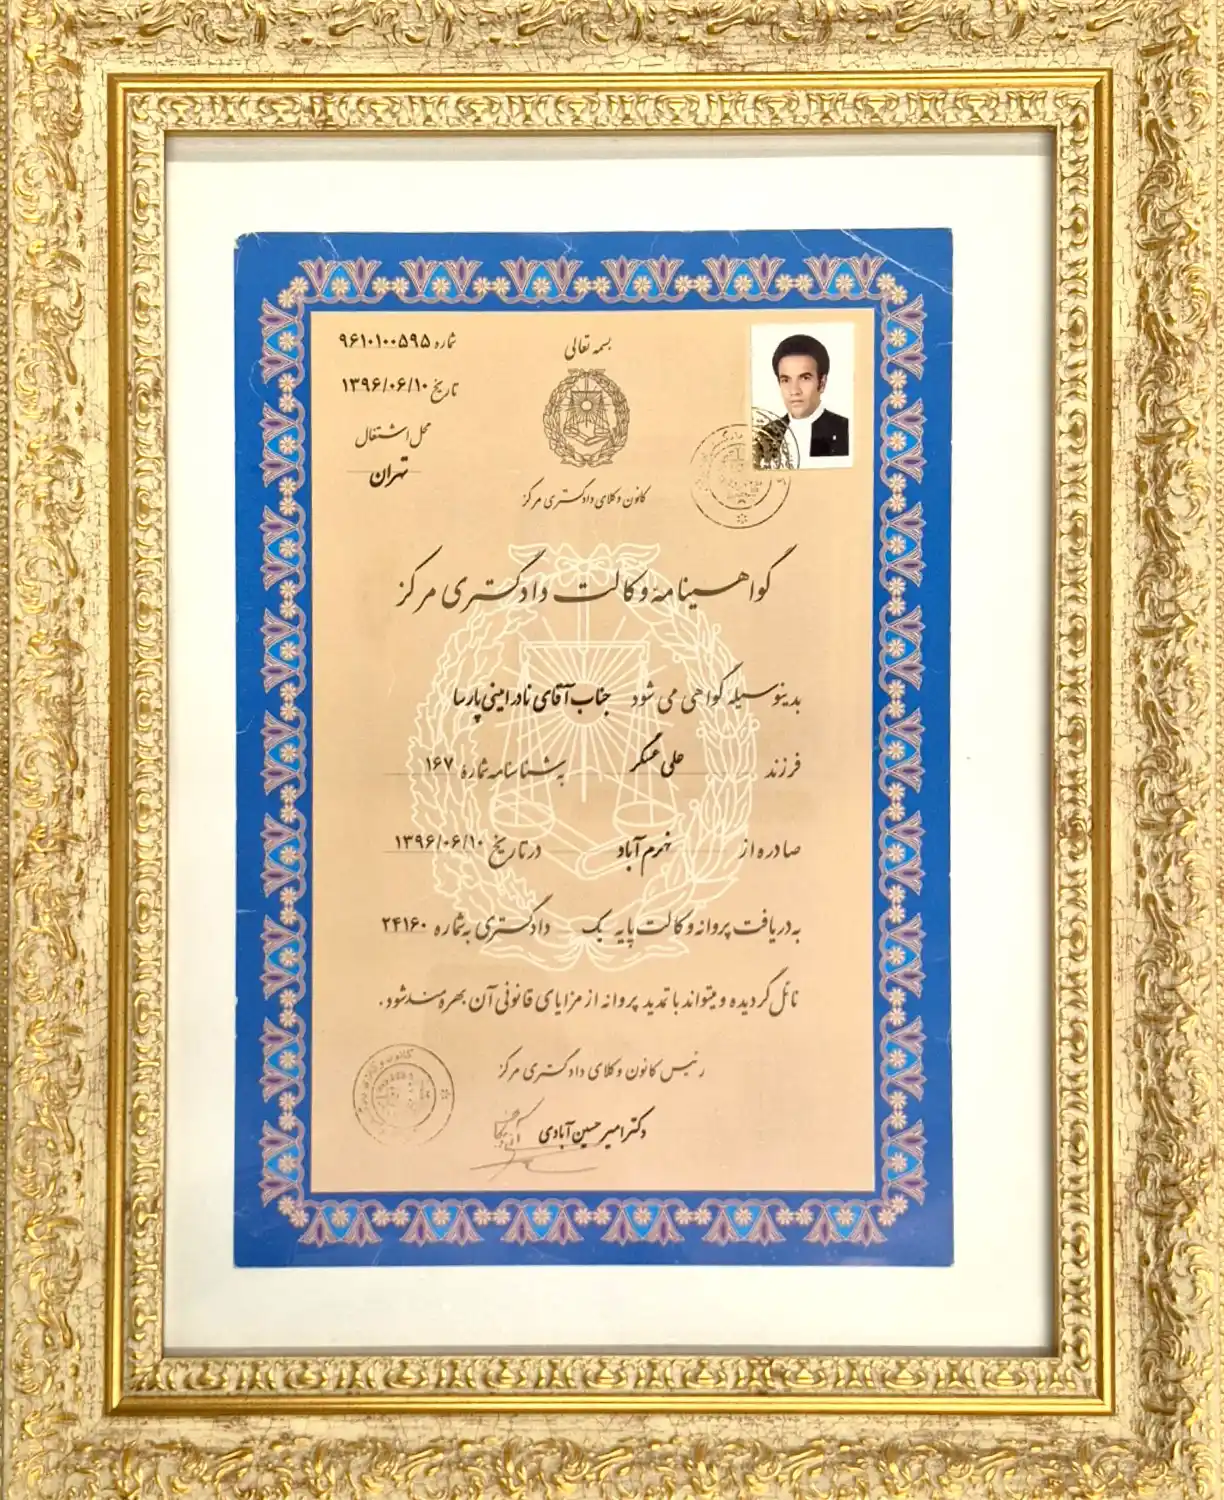 بسمه تعالی
شماره ۹۶۱۰۱۰۰۵۹۵
تاریخ ۱۳۹۶/۰۶/۱۰
محل اشتغال
تهران
کانون وکلای دادگستری مرکز
گواهینامهٔ وکالت دادگستری مرکز
بدینوسیله گواهی می شود جناب آقای نادر امینی پارسا
فرزند علی عسگر به شناسنامه شمارهٔ ۱۶۷
صادره از خرم آباد در تاریخ ۱۳۹۶/۰۶/۱۰
به دریافت پروانه وکالت پایه یک دادگستری به شماره ۲۴۱۶۰
نائل گردیده و میتواند با تمدید پروانه از مزایای قانونی آن بهره مند شود.
رئیس کانون وکلای دادگستری مرکز
دکتر امیر حسین آبادی